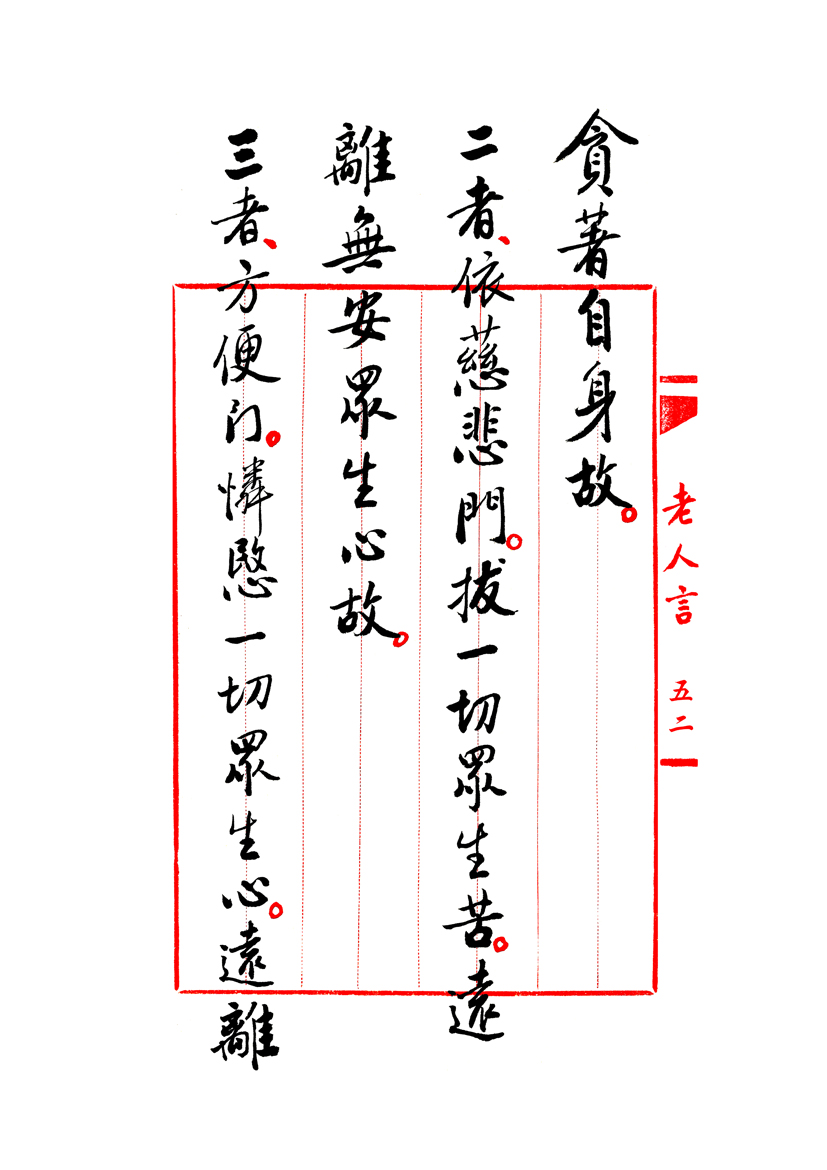 貪著自身故。
二者、依慈悲門。拔一切眾生苦。遠
離無安眾生心故。
三者、方便门。憐愍一切眾生心。遠離
老人言 五二